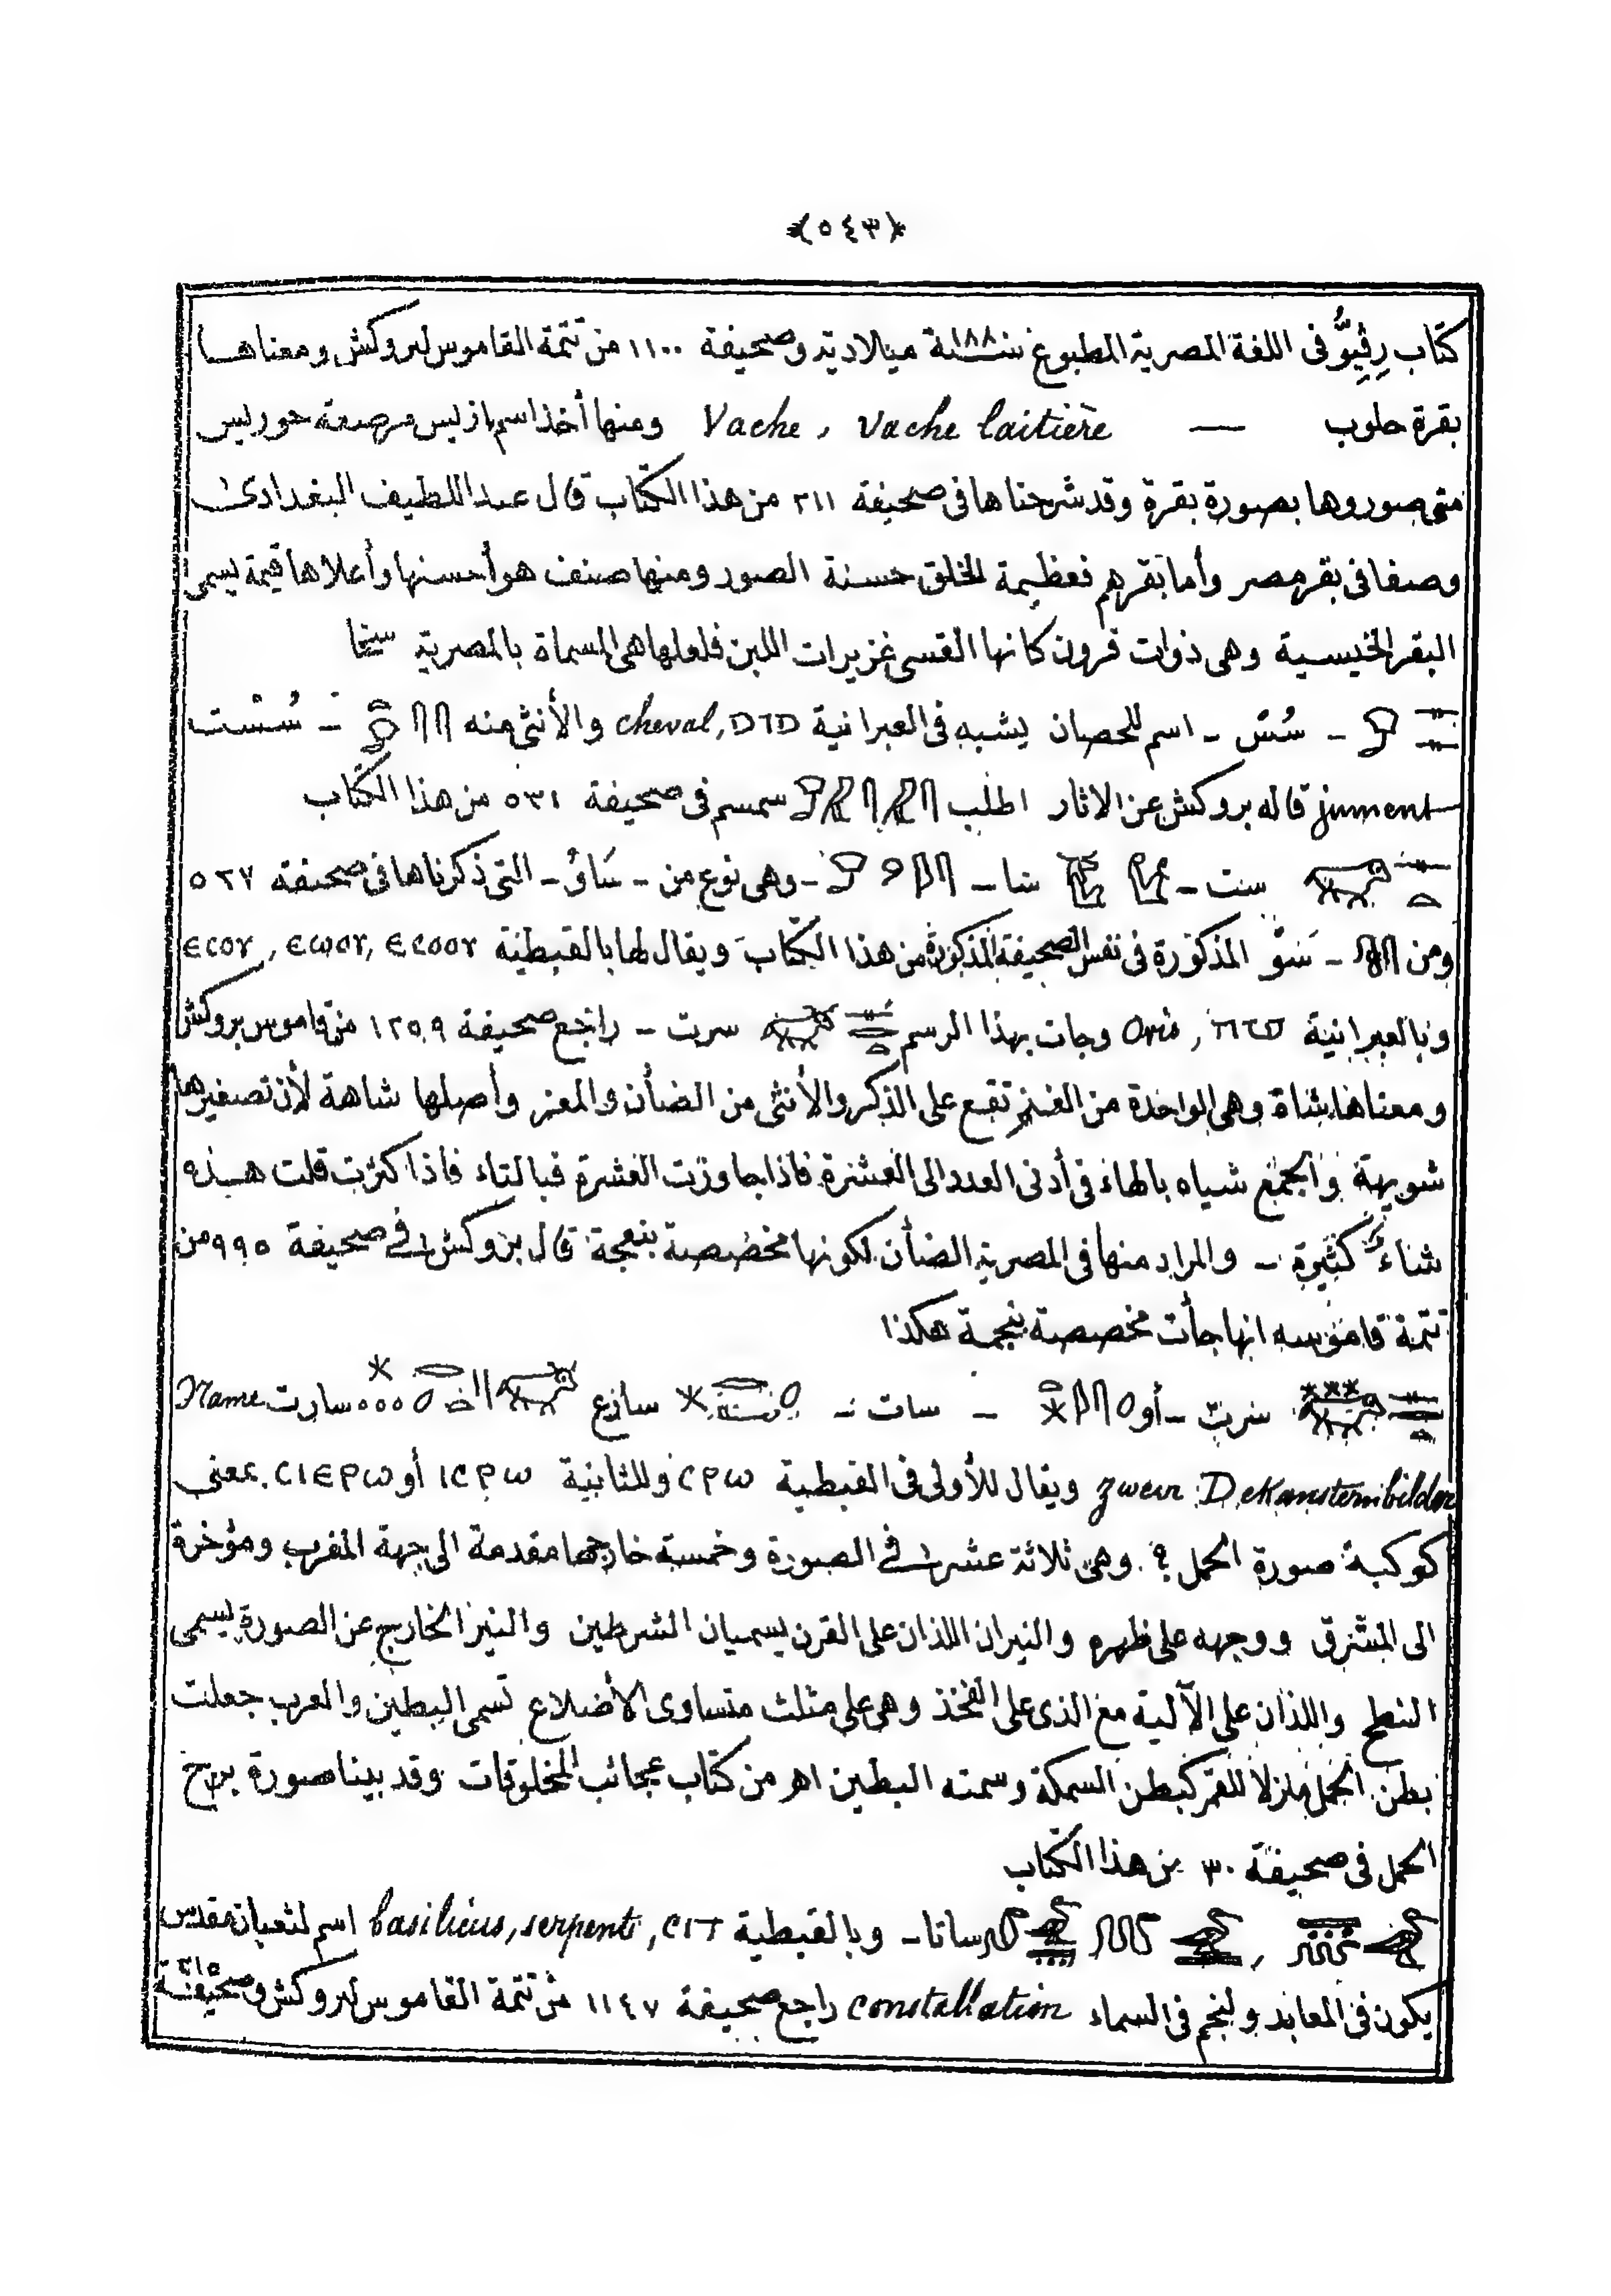 ﴿٥٤٣﴾
كتاب رڤيو فى اللغة المصرية المطبوع سنة ١٨٨ ميلادية وصحيفة ١١٠٠ من تتمة القاموس لبروكش ومعناها
بقرة حلوب — Vache, vache laitière ومنها أخذ اسم ازيس مرضعة حوريس
متى صوروها بصورة بقرة وقد شرحناها فى صحيفة ٣١١ من هذا الكتاب قال عبد اللطيف البغدادى
وصفا فى بقر مصر وأما بقرهم فعظيمة الخلق حسنة الصور ومنها صنف هو أحسنها وأعلاها قيمة يسمى
البقر الخيسية وهى ذوات قرون كانها القسى غزيرات اللبن فلعلها هى المسماة بالمصرية
- سُسْ - اسم للحصان يشبه فى العبرانية סוס, cheval والأنثى منه - سُسْت
jument قاله بروكش عن الاثار اطلب سمسم فى صحيفة ٥٣١ من هذا الكتاب
ست - سا - - وهى نوع من - سَاوُ - التى ذكرناها فى صحيفة ٥٢٧
ومن - سَوّ المذكورة فى نفس الصحيفة المذكورة من هذا الكتاب ويقال لها بالقبطية ⲉⲥⲟⲩ, ⲉⲥⲱⲟⲩ, ⲉⲥⲟⲟⲩ
وبالعبرانية , Ovis وجات بهذا الرسم سرت - راجع صحيفة ١٢٥٩ من قاموس بروكش
ومعناها شاة وهى الواحدة من الغنم تقع على الذكر والأنثى من الضأن والمعز وأصلها شاهة لأن تصغيرها
شويهة والجمع شياه بالهاء فى أدنى العدد الى العشرة فاذا جاوزت العشرة فبالتاء فاذا كثرت قلت هذه
شاء كثيرة - والمراد منها فى المصرية الضأن لكونها مخصصة بنعجة قال بروكش فى صحيفة ٩٩٥ من
تتمة قاموسه انها جأت مخصصة بنجمة هكذا
سرت - أو - سات - سازع سارت Name
zweir Dekansternbilder ويقال للأولى فى القبطية ⲥⲣⲱ وللثانية ⲓⲥⲣⲱ أو ⲥⲓⲉⲣⲱ بمعنى
كوكبة صورة الحمل ؟ وهى ثلاثة عشر فى الصورة وخمسة خارجها مقدمة الى جهة المغرب ومؤخرة
الى المشرق ووجهه على ظهره والنيران اللذان على القرن يسميان الشرطين والنير الخارج عن الصورة يسمى
النطح واللذان على الآلية مع الذى على الفخذ وهى على مثلث متساوى الأضلاع تسمى البطين والعرب جعلت
بطن الحمل منزلا للقمر كبطن السمكة وسمته البطين اهـ من كتاب عجائب المخلوقات وقد بينا صورة برج
الحمل فى صحيفة ٣٠ من هذا الكتاب
ساتا - وبالقبطية ⲥⲓⲧ, basilicus, serpents اسم لثعبان مقدس
يكون فى المعابد ولنجم فى السماء constallation راجع صحيفة ١١٤٧ من تتمة القاموس لبروكش وصحيفة ٣١٥